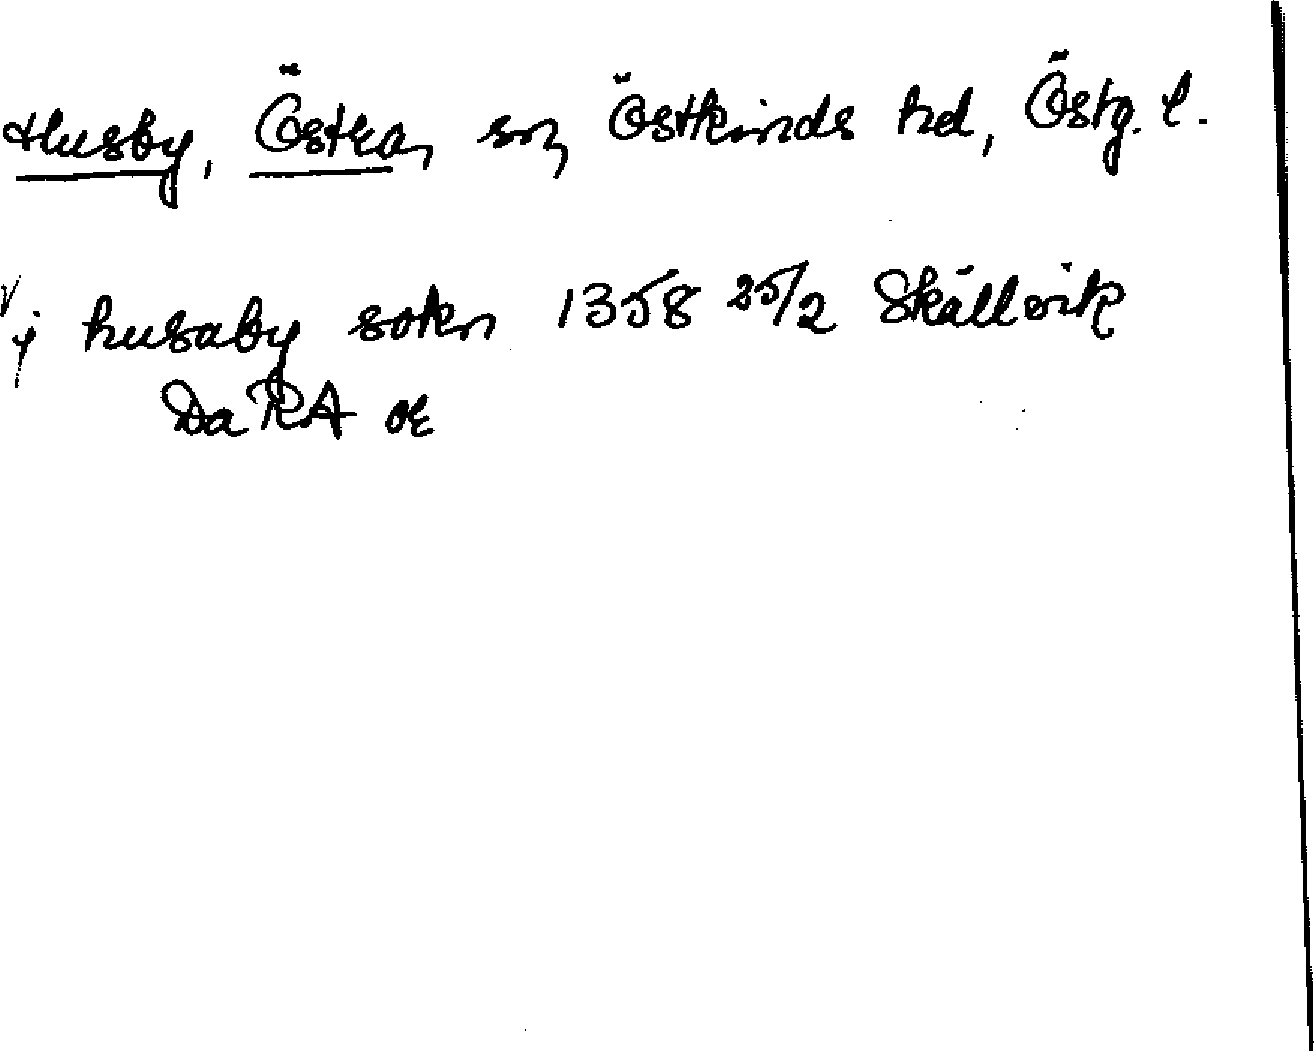 Husby, Östra, sn, Östkinds hd, Östg. l.
j husaby sokn 1358 25/2 Skällvik
Da RA or